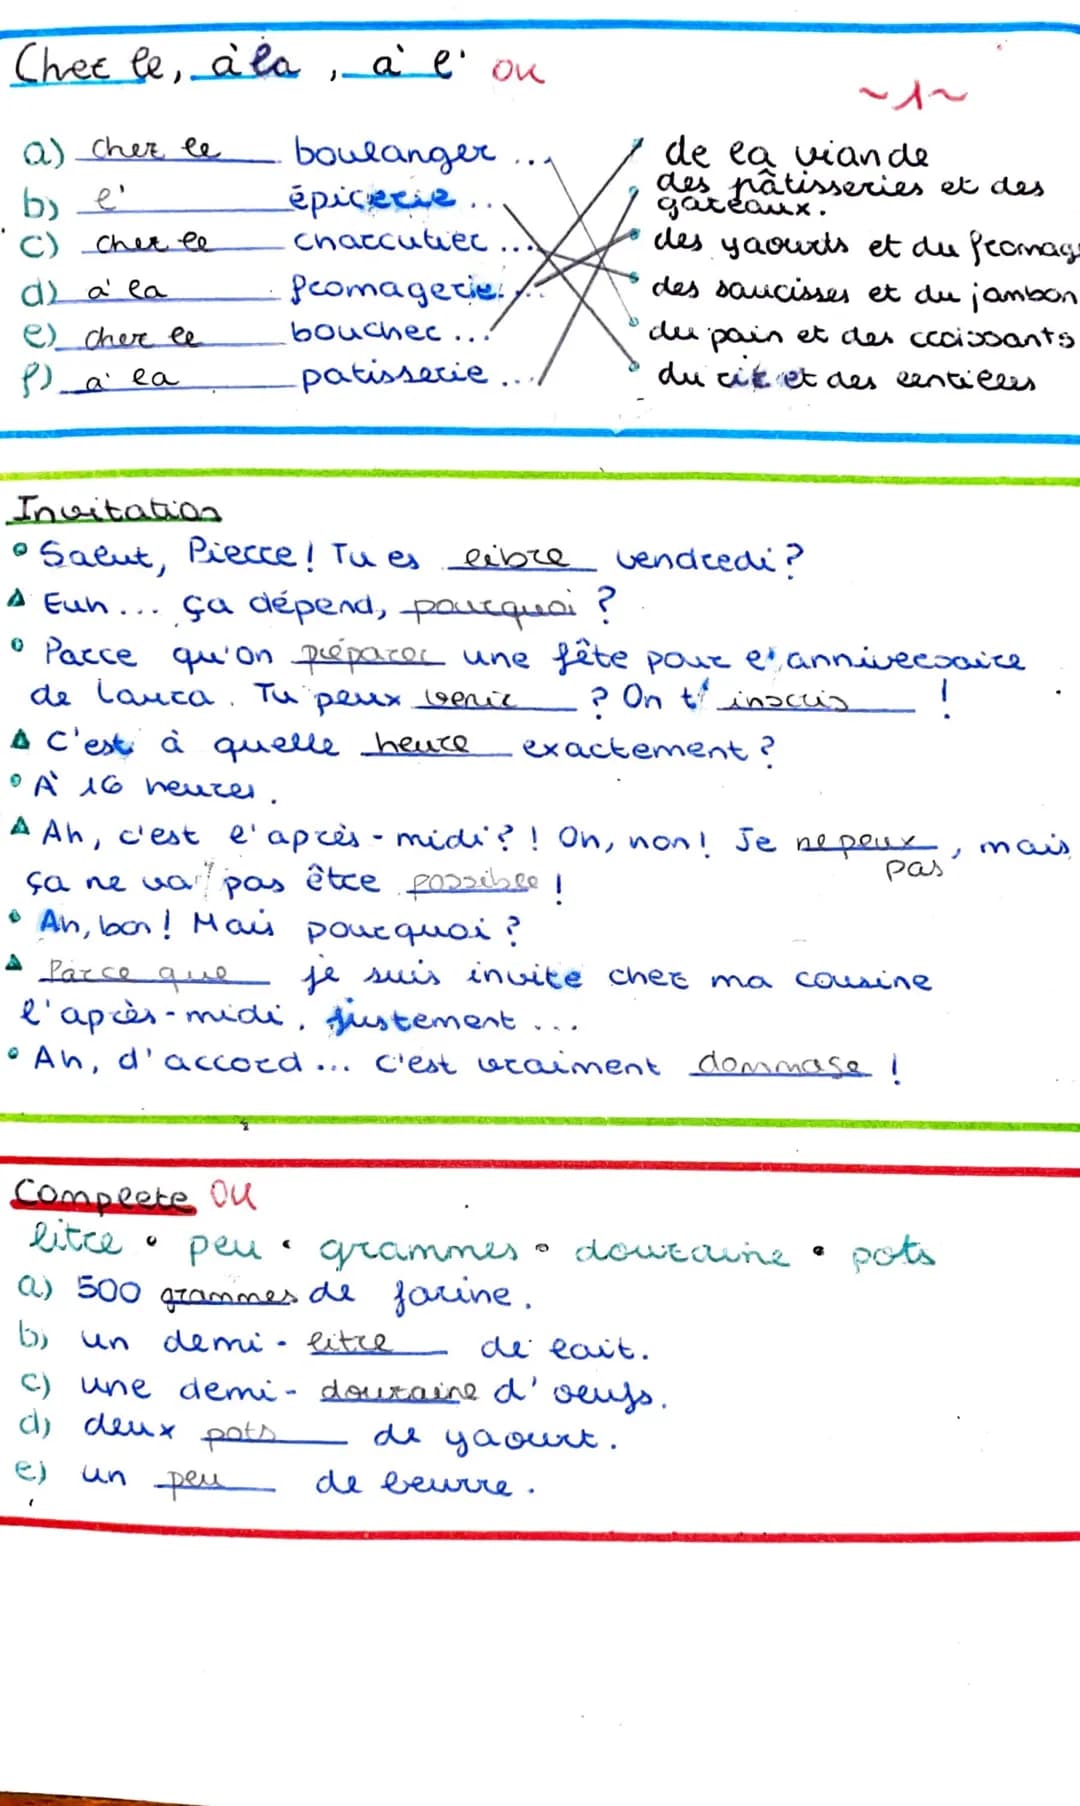 Chez le, à la, à l' ou
~1~
a) chez le boulanger ... de la viande
b) l' épicerie .. des pâtisseries et des gateaux.
c) chez le charcutier ... des yaourts et du fromag
d) à la fromagerie... des saucisses et du jambon
e) chez le boucher ... du pain et des croissants
f) à la patisserie ... du riz et des lentilles
Invitation
Salut, Pierre! Tu es libre vendredi?
Euh... ça dépend, pourquoi ?
Parce qu'on préparer une fête pour l'anniversaire
de Laura. Tu peux venir ? On t' inscris !
C'est à quelle heure exactement?
À 16 heures.
Ah, c'est l'après-midi?! Oh, non! Je ne peux pas, mais
ça ne va pas être possible !
Ah, bon! Mais pourquoi?
Parce que je suis invite chez ma cousine
l'après-midi, justement ...
Ah, d'accord... c'est vraiment dommage !
Complete ou
litre • peu • grammes • douzaine • pots
a) 500 grammes de farine.
b) un demi-litre de lait.
c) une demi-douzaine d'oeufs.
d) deux pots de yaourt.
e) un peu de beurre.